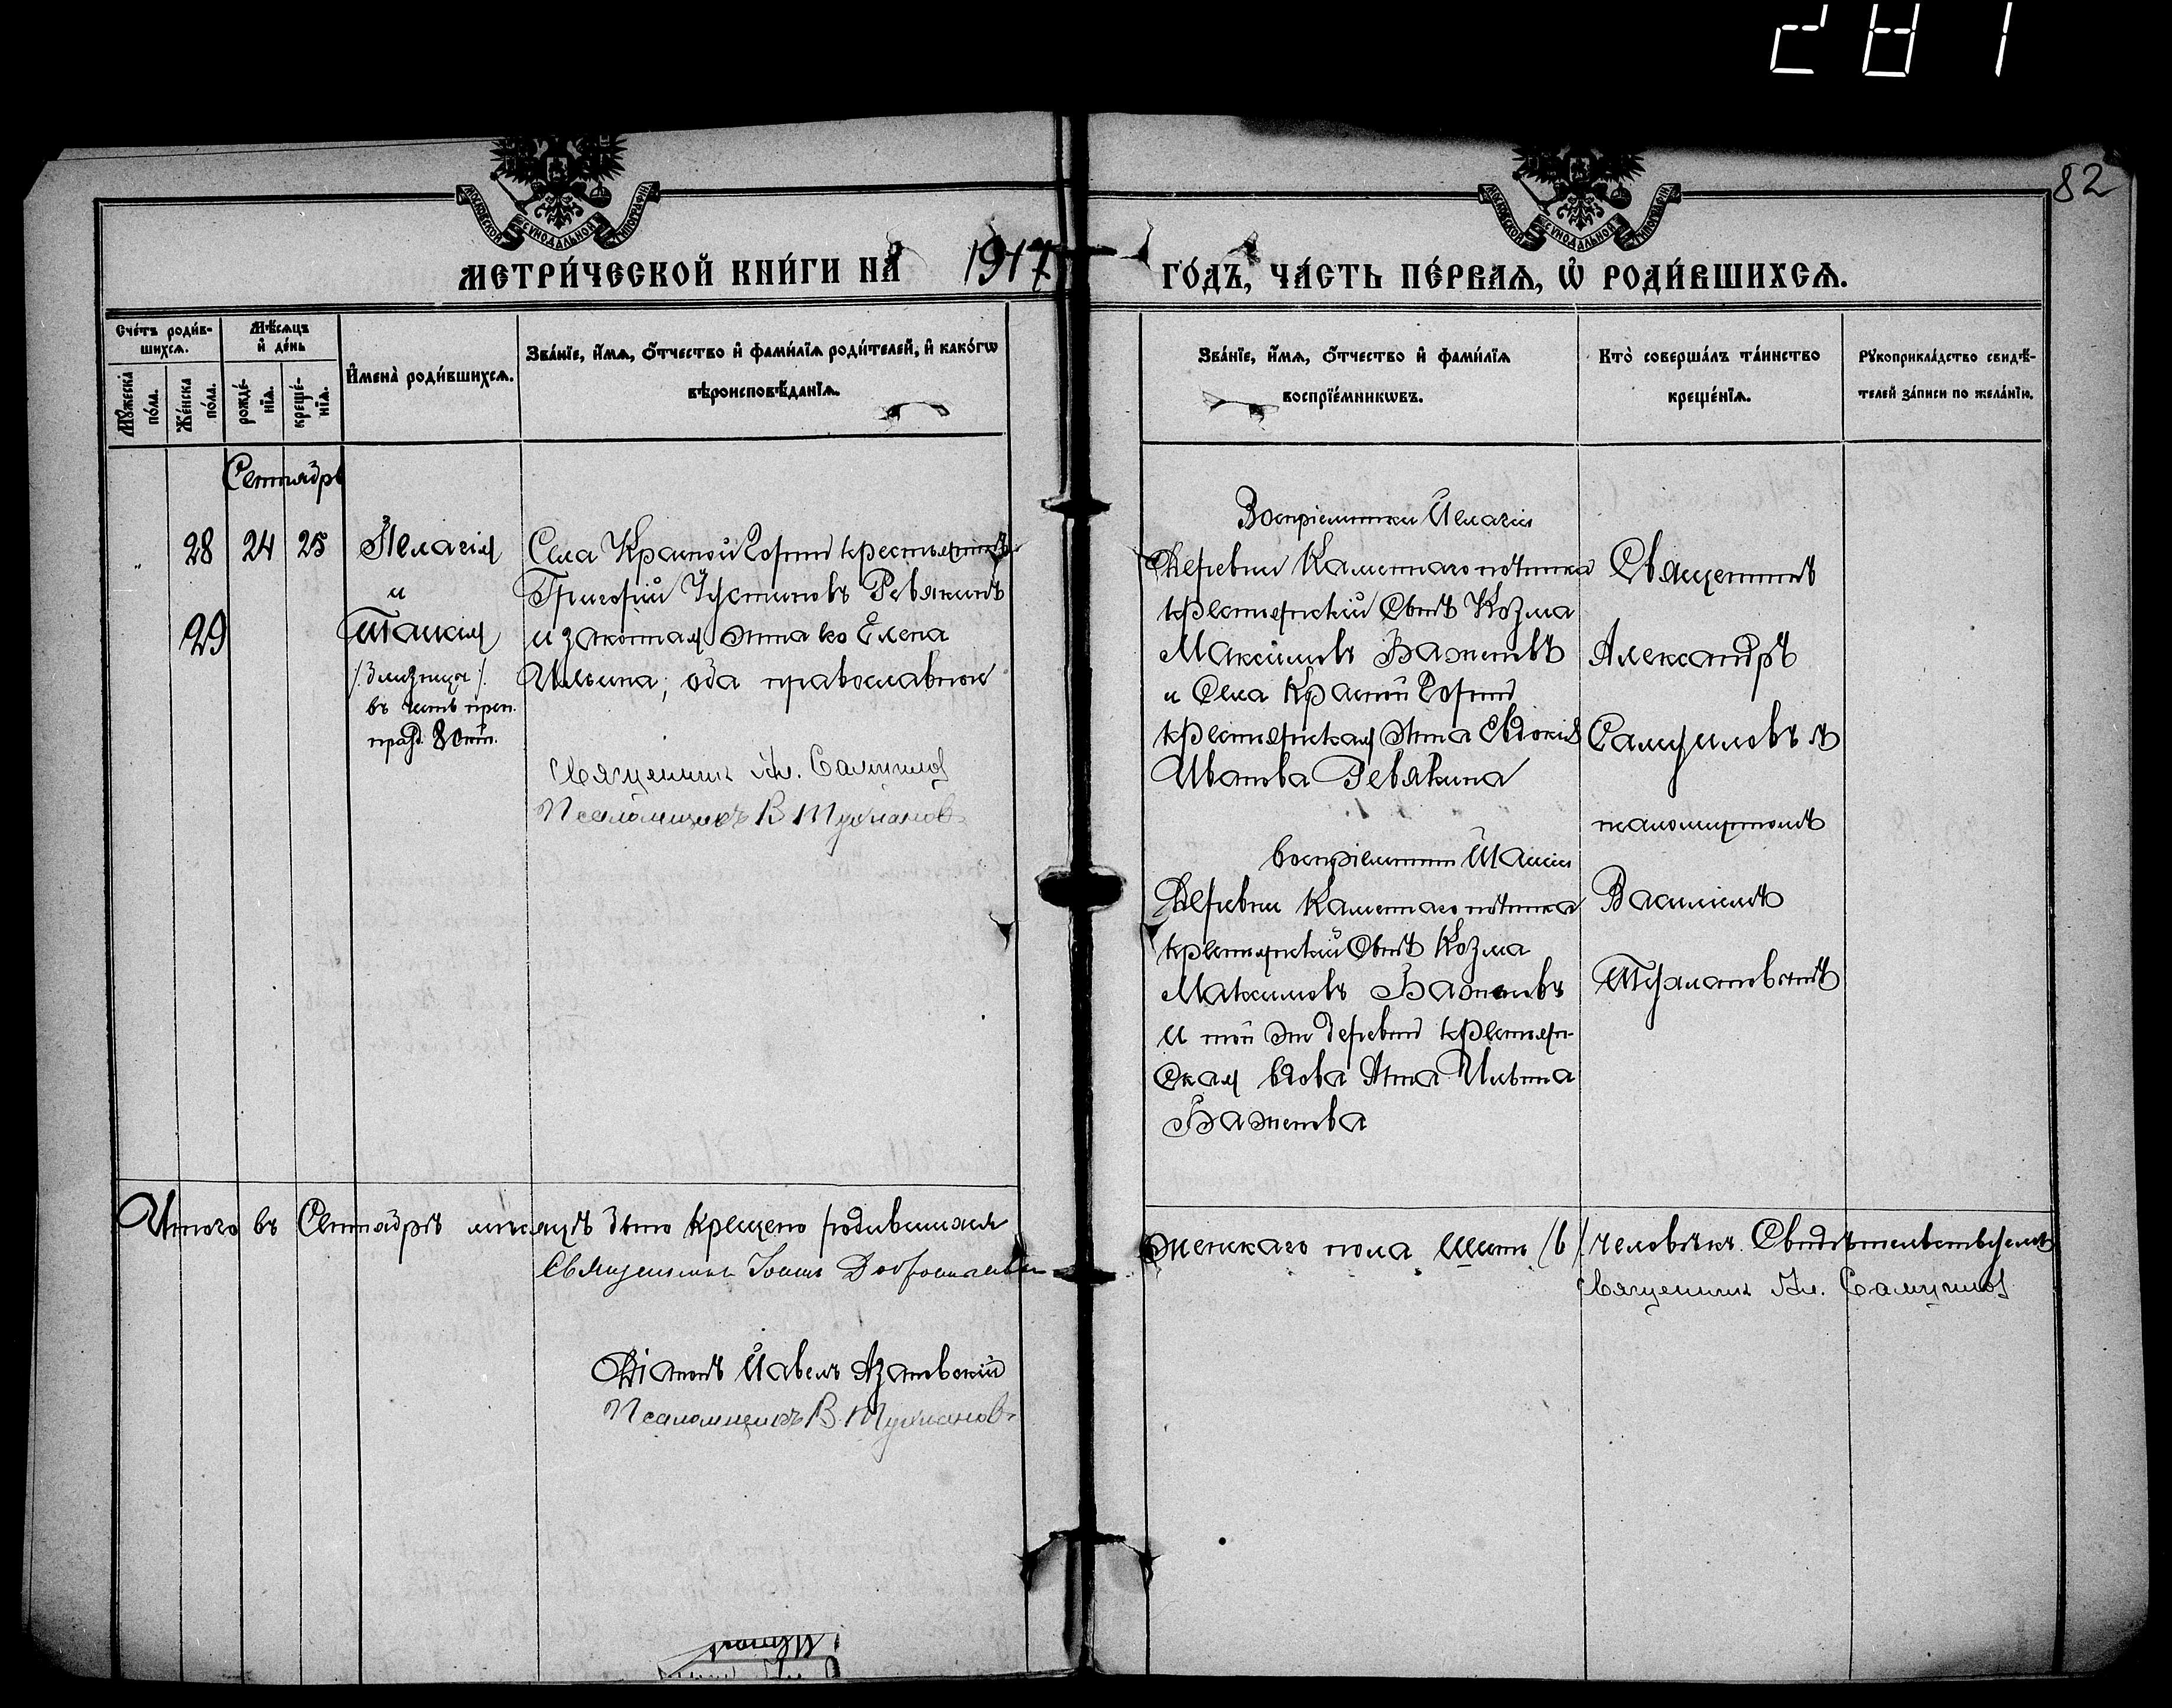 281
82
МОСКОВСКОЙ СѴНОДАЛЬНОЙ ТИПОГРАФІИ
МОСКОВСКОЙ СѴНОДАЛЬНОЙ ТИПОГРАФІИ
МЕТРИ́ЧЕСКОЙ КНИ́ГИ НА̀ 1917 ГО́ДЪ, ЧА́СТЬ ПЕ́РВАѦ, Ѡ҆ РОДИ́ВШИХСѦ.
Сче́тъ роди́в-
шихсѧ.
Мꙋ́жеска по́ла.
Же́нска по́ла.
Мѣ́сѧцъ
и҆ де́нь
рожде́-
нїѧ.
креще́-
нїѧ.
И҆мена̀ роди́вшихсѧ.
Зва́нїе, и҆́мѧ, ѻ҆́тчество и҆ фами́лїѧ роди́телей, и҆ како́гѡ
вѣроисповѣ́данїѧ.
Зва́нїе, и҆́мѧ, ѻ҆́тчество и҆ фами́лїѧ
воспрїе́мникѡвъ.
Кто̀ соверша́лъ та́инство
креще́нїѧ.
Рꙋкоприкла́дство свидѣ́-
телей за́писи по жела́нїю.
Сентябрь
28 24 25 Пелагія
и
29 Таисія
/: Близнецы :/
въ честь преп.
празд. 8 окт.
Села Красной Горки крестьянинъ
Григорій Устиновъ Ревякинъ
и законная жена его Елена
Ильина; оба православнои
Священник Ал. Самуилов
Псаломщикъ В. Тухланов
Воспріемники Пелагіи
Деревни Каменнаго
крестьянскій сынъ Козма
Максимовъ Баженовъ
и Села Красной Горки
крестьянская жена Евдокія
Иванова Ревякина
Воспріемники Таисіи
Деревни Каменнаго
крестьянскій сынъ Козма
Максимовъ Баженовъ
и той же деревни крестьян-
ская вдова Анна Ильина
Баженова
Священникъ
Александръ
Самуиловъ съ
псаломщикомъ
Василіемъ
Итого въ Сентябрѣ мѣсяцѣ было крещено родившихся
женскаго пола шесть /6/ человѣкъ. Свидѣтельствуемъ
Священник Іоаннъ
Священник Ал. Самуилов
Діаконъ Павелъ Азановскій
Псаломщикъ В. Тухланов